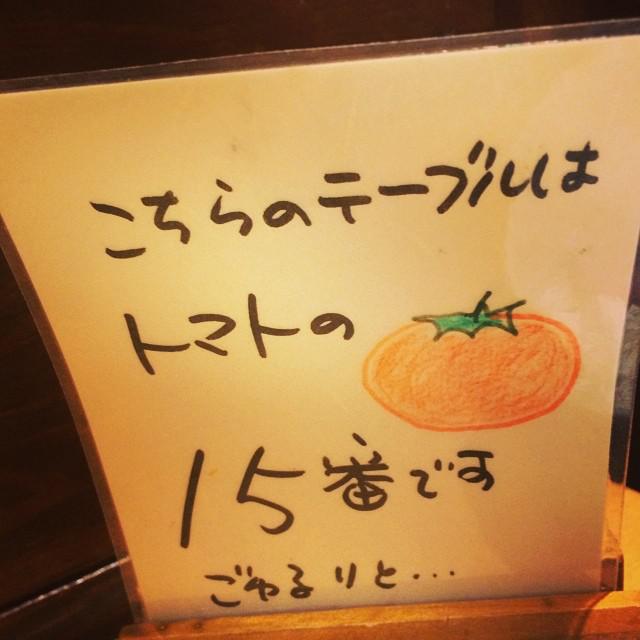 こちらのテーブルは
トマトの
15番です
ごゆるりと...